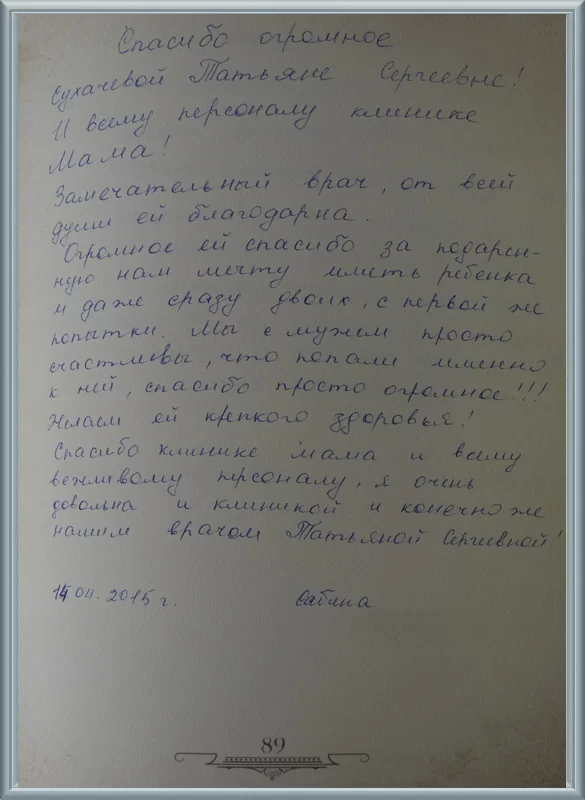 Спасибо огромное
Сухачевой Татьяне Сергеевне!
И всему персоналу клинике
Мама!
Замечательный врач, от всей
души ей благодарна.
Огромное ей спасибо за подарен-
ную нам мечту иметь ребенка
и даже сразу двоих, с первой же
попытки. Мы с мужем просто
счастливы, что попали именно
к ней, спасибо просто огромное!!!
Желаем ей крепкого здоровья!
Спасибо клинике мама и всему
вежливому персоналу, я очень
довольна и клиникой и конечно же
нашим врачом Татьяной Сергеевной!
14 04. 2015 г. Сабина
89